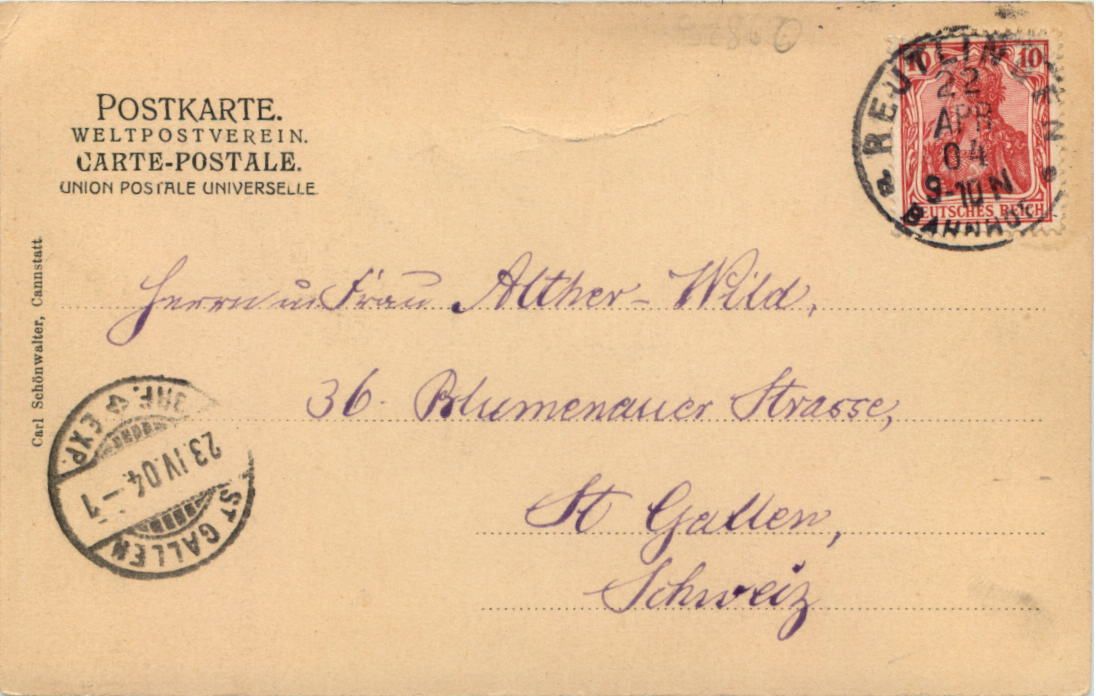 POSTKARTE.
WELTPOSTVEREIN.
CARTE-POSTALE.
UNION POSTALE UNIVERSELLE.
10 10
DEUTSCHES REICH
REUTLINGEN
22
APR
04
9-10 N
BAHNHOF
Carl Schönwalter, Cannstatt
Herrn u Frau Alther-Wild,
36. Blumenauer Strasse,
St Gallen,
Schweiz
BRF. EXP.
23.IV.04.-1
ST GALLEN